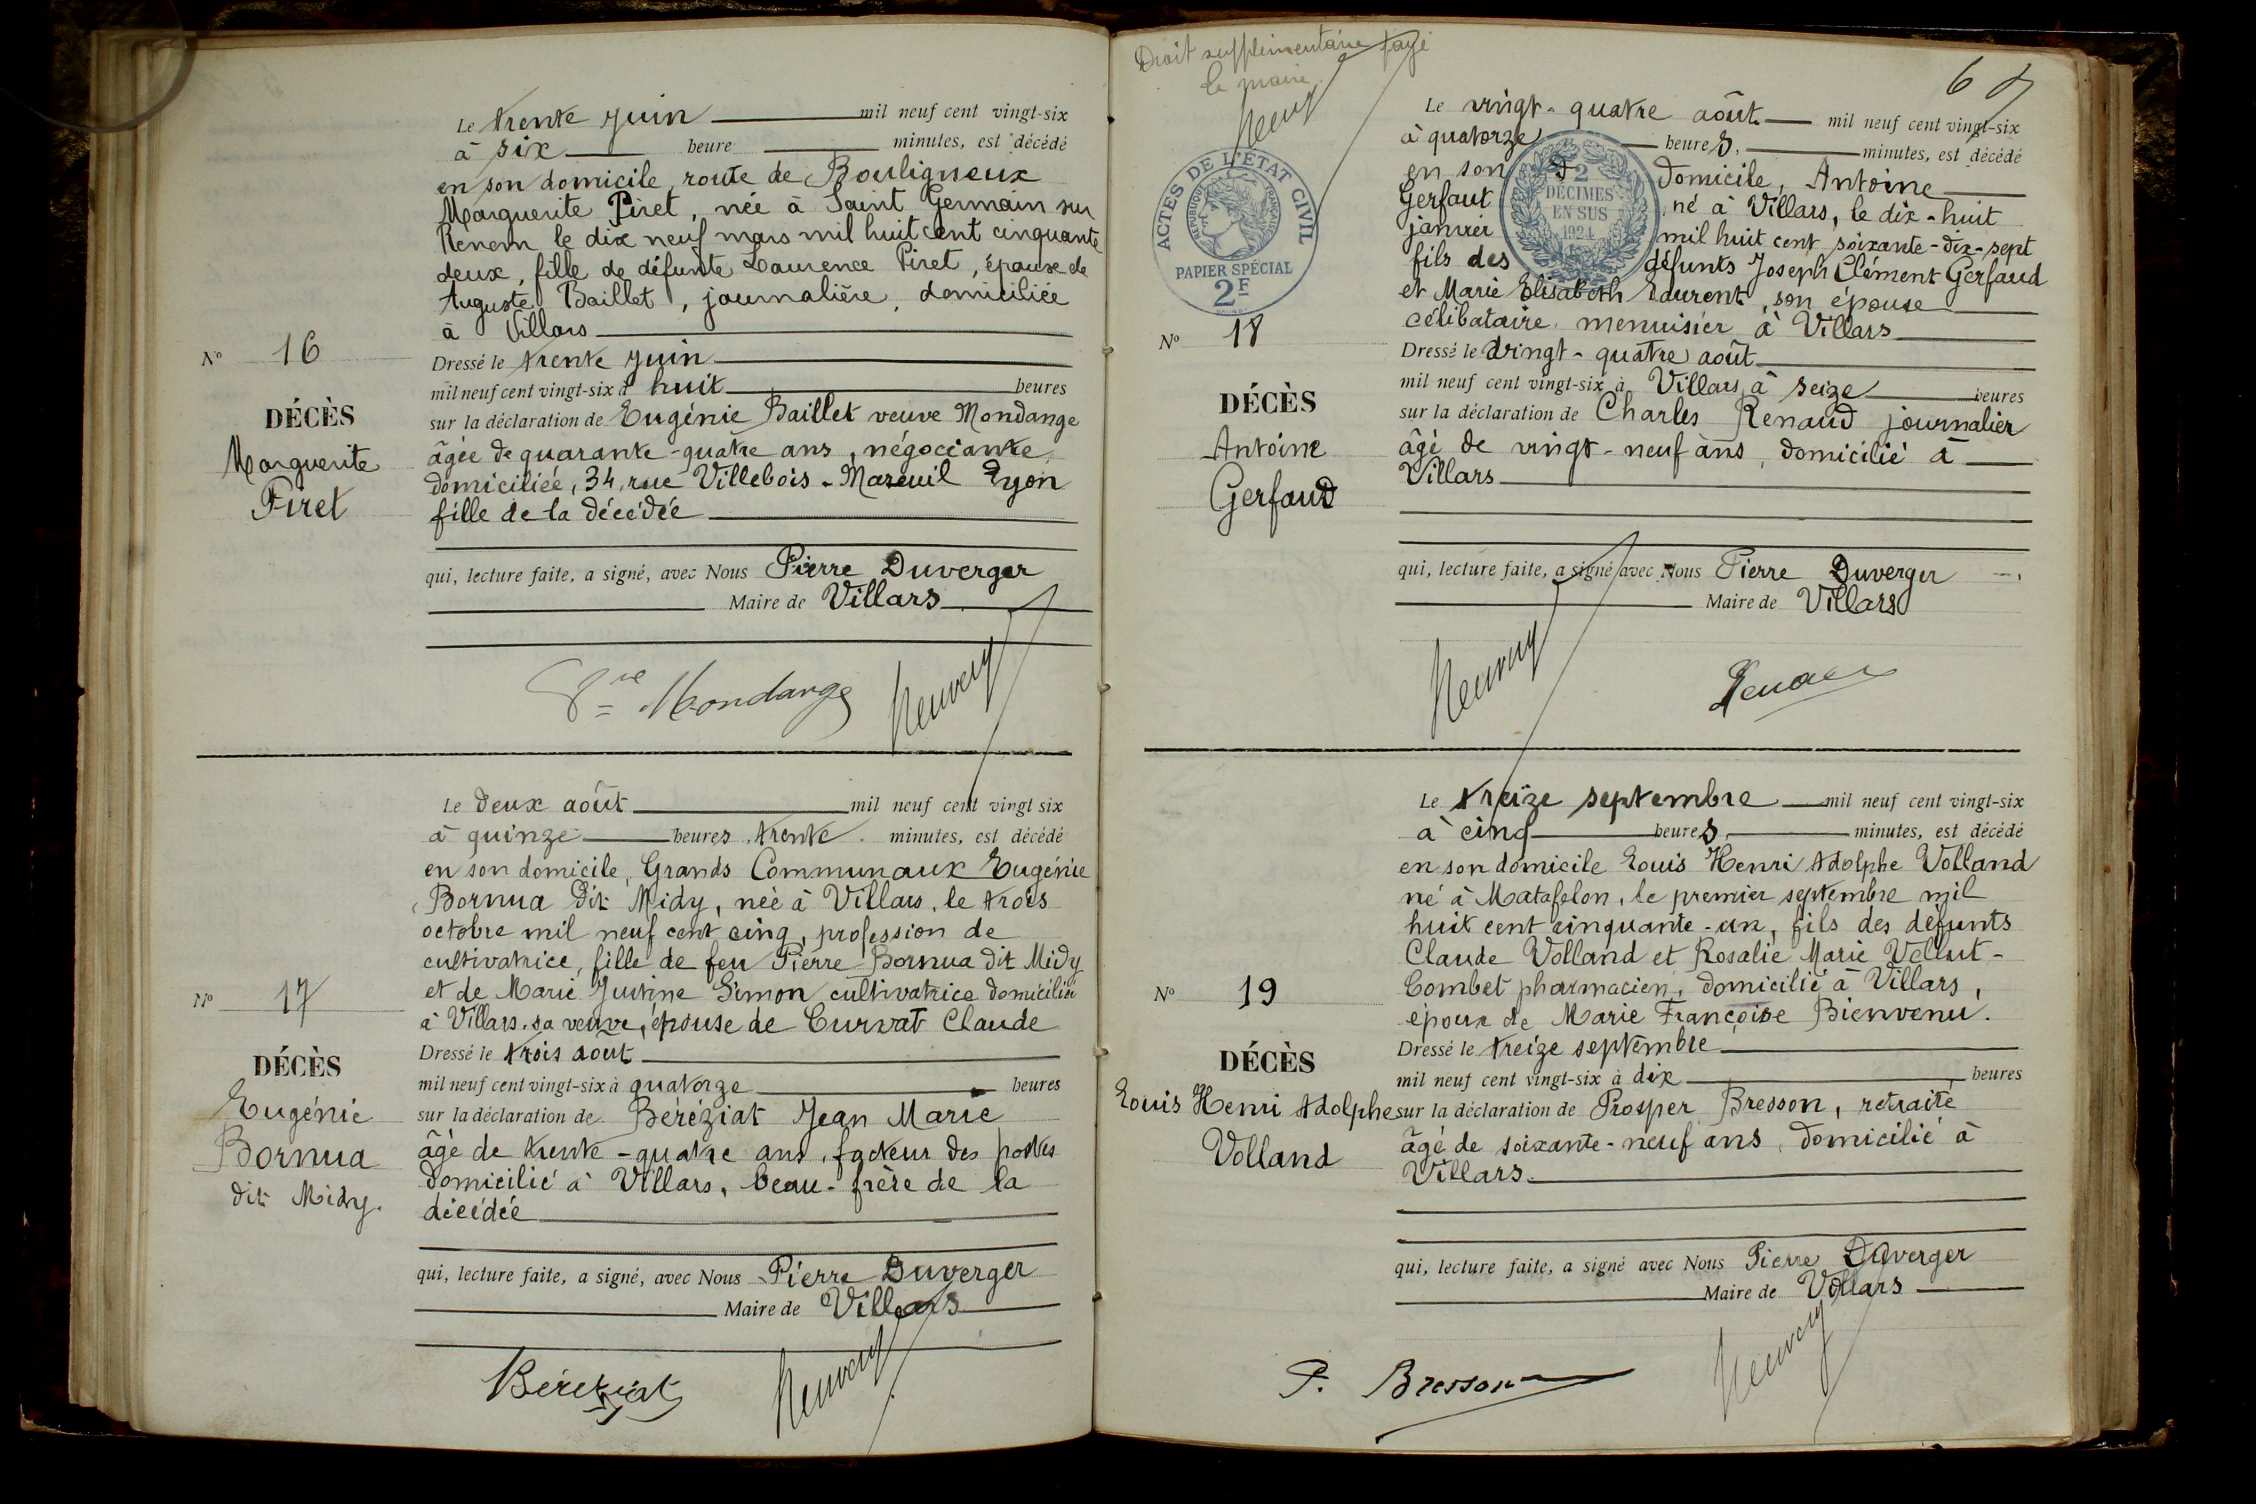 Le trente juin mil neuf cent vingt-six
à six heure minutes, est décédé
en son domicile, route de Bouligneux
Marguerite Piret, née à Saint Germain sur
Renom le dix neuf mars mil huit cent cinquante
deux, fille de défunte Laurence Piret, épouse de
Auguste Baillet, journalière, domiciliée
à Villars
Nº 16
DÉCÈS
Marguerite
Piret
Dressé le trente juin
mil neuf cent vingt-six à huit heures
sur la déclaration de Eugénie Baillet veuve Mondange
âgée de quarante-quatre ans, négociante,
domiciliée, 34, rue Villebois-Mareuil Lyon
fille de la décédée
qui, lecture faite, a signé, avec Nous Pierre Duverger
Maire de Villars
Vve Mondange
Le deux août mil neuf cent vingt six
à quinze heures trente minutes, est décédé
en son domicile, Grands Communaux Eugénie
Bornua dit Midy, née à Villars, le trois
octobre mil neuf cent cinq, profession de
cultivatrice, fille de feu Pierre Bornua dit Midy
et de Marie Justine Simon cultivatrice domicilié
à Villars, sa veuve, épouse de Curvat Claude
Nº 17
DÉCÈS
Eugénie
Bornua
dit Midy.
Dressé le trois août
mil neuf cent vingt-six à quatorze heures
sur la déclaration de Béréziat Jean Marie
âgé de trente-quatre ans, facteur des postes
domicilié à Villars, beau-frère de la
décédée
qui, lecture faite, a signé, avec Nous Pierre Duverger
Maire de Villars
Béréziat
Droit supplémentaire payé
le maire
ACTES DE L'ETAT CIVIL
REPUBLIQUE FRANÇAISE
PAPIER SPÉCIAL
2F
2
DÉCIMES
EN SUS
1924
Le vingt-quatre août mil neuf cent vingt-six
à quatorze heures, minutes, est décédé
en son domicile, Antoine
Gerfaut né à Villars, le dix-huit
janvier mil huit cent soixante-dix-sept
fils des défunts Joseph Clément Gerfaud
et Marie Elisabeth Laurent, son épouse
célibataire, menuisier à Villars
Nº 18
DÉCÈS
Antoine
Gerfaud
Dressé le vingt-quatre août
mil neuf cent vingt-six à Villars, à seize heures
sur la déclaration de Charles Renaud journalier
âgé de vingt-neuf ans, domicilié à
Villars
qui, lecture faite, a signé avec Nous Pierre Duverger
Maire de Villars
Le treize septembre mil neuf cent vingt-six
à cinq heures, minutes, est décédé
en son domicile Louis Henri Adolphe Volland
né à Matafelon, le premier septembre mil
huit cent cinquante-un, fils des défunts
Claude Volland et Rosalie Marie Vellut-
Combet pharmacien, domicilié à Villars,
époux de Marie Françoise Bienvenu.
Nº 19
DÉCÈS
Louis Henri Adolphe
Volland
Dressé le treize septembre
mil neuf cent vingt-six à dix heures
sur la déclaration de Prosper Bresson, retraité
âgé de soixante-neuf ans, domicilié à
Villars.
qui, lecture faite, a signé avec Nous Pierre Duverger
Maire de Villars
P. Bresson